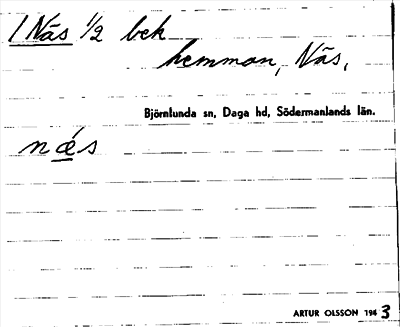 1 Näs 1/2 bek
hemman, Näs,
Björnlunda sn, Daga hd, Södermanlands län.
næ´s
ARTUR OLSSON 1943